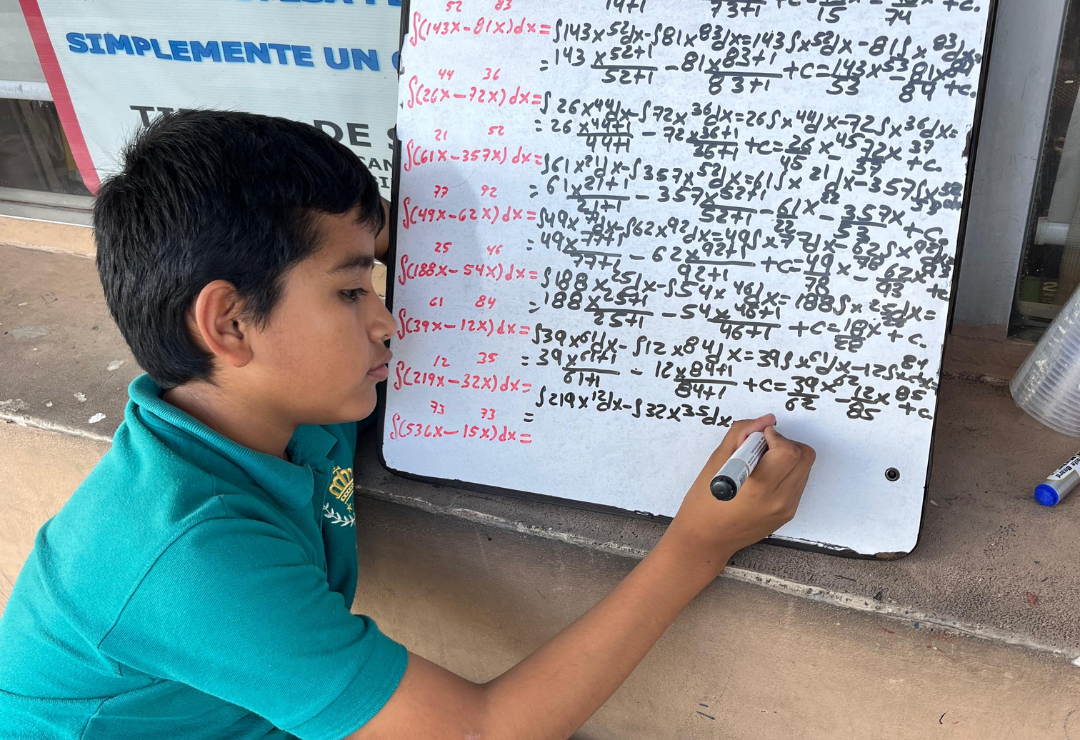 SIMPLEMENTE UN
52 83
∫(143x-81x)dx=∫143x⁵²dx-∫81x⁸³dx=143∫x⁵²dx-81∫x⁸³dx
=143 x52+1/52+1 - 81 x83+1/83+1 +c=143/53 x⁵³-81/84 x⁸⁴+c.
44 36
∫(26x-72x)dx=∫26x⁴⁴dx-∫72x³⁶dx=26∫x⁴⁴dx-72∫x³⁶dx=
=26 x44+1/44+1 - 72 x36+1/36+1 +c=26/45 x⁴⁵-72/37 x³⁷+c.
21 52
∫(61x-357x)dx=∫61x²¹dx-∫357x⁵²dx=61∫x²¹dx-357∫x⁵²dx
=61 x21+1/21+1 - 357 x52+1/52+1 - 61/22 x²² - 357x/53 +c.
77 92
∫(49x-62x)dx=∫49x⁷⁷dx-∫62x⁹²dx=49∫x⁷⁷dx-62∫x⁹²dx
=49 x77+1/77+1 - 62 x92+1/92+1 +c=49/78 x⁷⁸-62/93 x⁹³+c
25 46
∫(188x-54x)dx=∫188x²⁵dx-∫54x⁴⁶dx=188∫x²⁵dx=
=188 x25+1/25+1 - 54 x46+1/46+1 +c= +c.
61 84
∫(39x-12x)dx=∫39x⁶¹dx-∫12x⁸⁴dx=39∫x⁶¹dx-12∫x⁸⁴
=39 x61+1/61+1 - 12 x84+1/84+1 +c=39/62 x⁶²-12/85 x⁸⁵+c
12 35
∫(219x-32x)dx=∫219x¹²dx-∫32x³⁵dx
=
73 73
∫(536x-15x)dx=